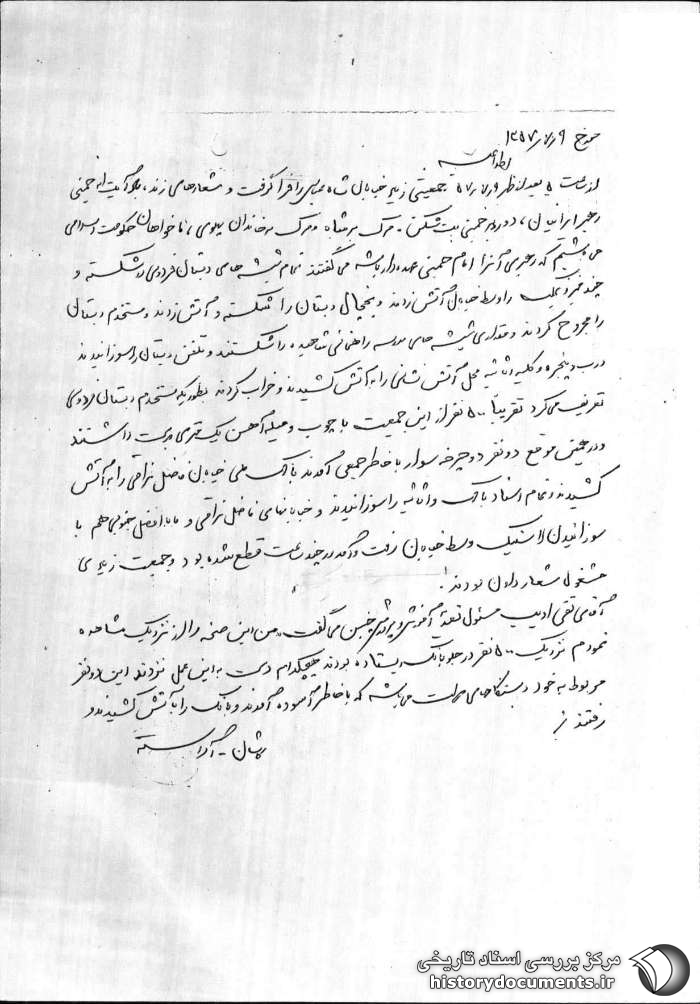 مورخ ۱۳۵۷/۷/۹
از ساعت ۵ بعد از ظهر ۵۷/۷/۹ جمعیتی زیاد خیابان شاه عباسی را فرا گرفت و شعارهای زنده باد آیت اله خمینی
رهبر ایرانیان، درود بر خمینی بت شکن - مرگ بر شاه و مرگ بر خاندان پهلوی، ما خواهان حکومت اسلامی
می باشیم که رهبری آنرا امام خمینی عهده دار باشد می گفتند تمام شیشه های دبستان فردوسی را شکسته و
چند را وسط خیابان آتش زدند و یخچال دبستان را شکسته و آتش زدند و مستخدم دبستان
را مجروح کردند و مقداری شیشه های مدرسه راهنمائی را شکستند و تلفن دبستان را سوزانیدند
درب و پنجره و کلیه اثاثیه محل آتش نشانی را به آتش کشیدند و خراب کردند بطوریکه مستخدم دبستان فردوسی
تعریف می کرد تقریباً ۵۰۰ نفر از این جمعیت با چوب و میله آهن یک متری در دست داشتند
و در همین موقع دو نفر دوچرخه سوار با خاطر جمعی آمدند بانک ملی خیابان فاضل نراقی را به آتش
کشیدند و تمام اسناد بانک و اثاثیه را سوزانیدند و خیابانهای فاضل نراقی و بابا افضل جنوبی هم با
سوزانیدن لاستیک وسط خیابان رفت و آمد در چند ساعت قطع شده بود و جمعیت زیادی
مشغول شعار دادن بودند.
آقای تقی ادیب مسئول تغذیه آموزش و پرورش می گفت، من این صحنه را از نزدیک مشاهده
نمودم نزدیک ۵۰۰ نفر در جلو بانک ایستاده بودند هیچکدام دست به این عمل نزدند این دو نفر
مربوط به خود دستگاههای دولت می باشد که با خاطر آسوده آمدند و بانک را به آتش کشیدند و
رفتند
مرکز بررسی اسناد تاریخی
historydocuments.ir